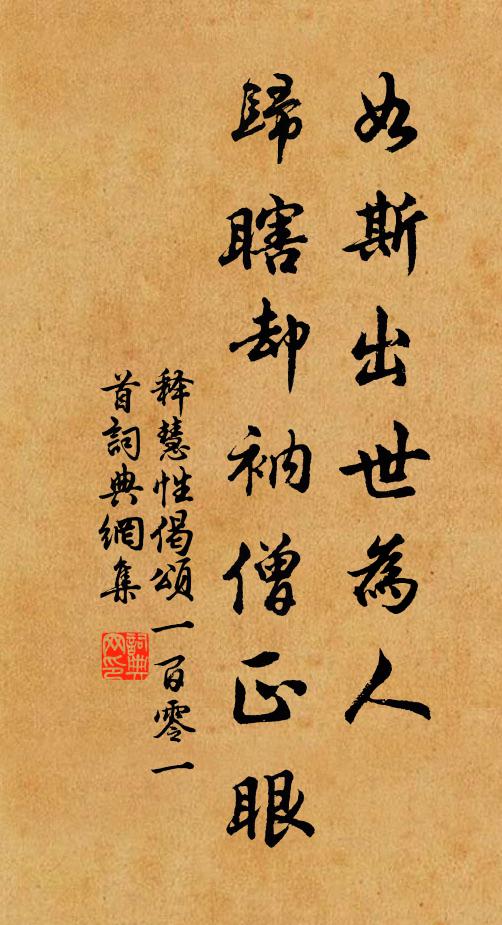 如斯出世為人
歸瞎却衲僧正眼
释慧性偈頌一百零一
首詞典網集
詞典网印